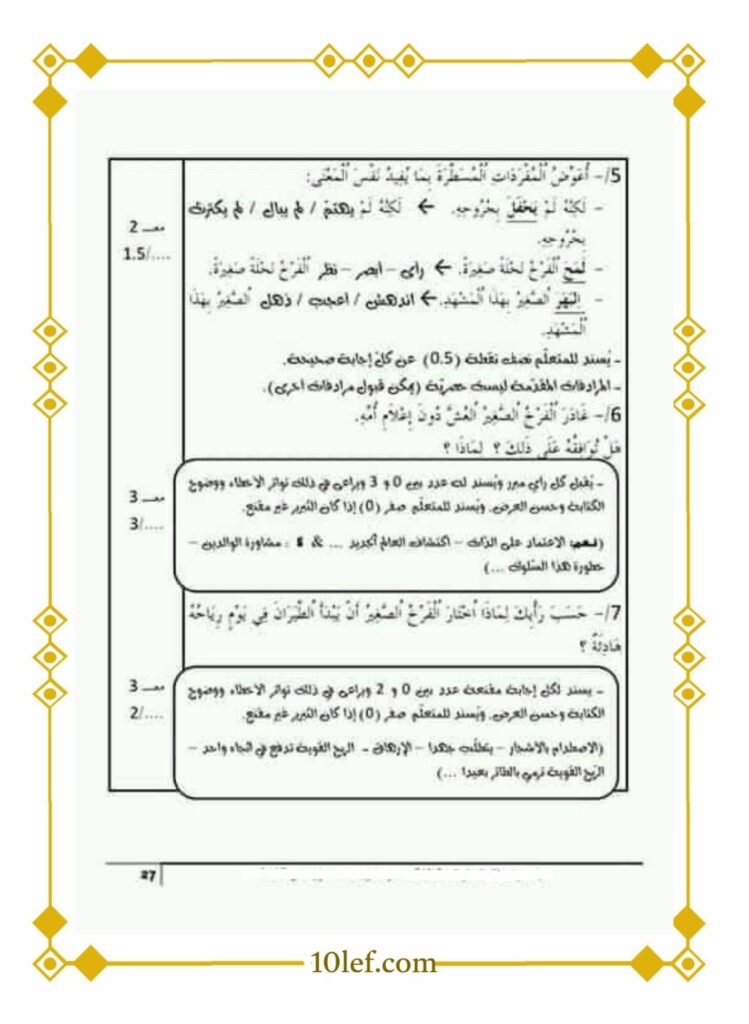 5/- أُعَوِّضُ الْمُفْرَدَاتِ الْمُسَطَّرَةَ بِمَا يُفِيدُ نَفْسَ الْمَعْنَى:
- لَكِنَّهُ لَمْ يَحْفَلْ بِخُرُوجِهِ. ← لَكِنَّهُ لَمْ يهتمّ / لم يبال / لم يكترث
بِخُرُوجِهِ.
- لَمَحَ الْفَرْخُ نَحْلَةً صَغِيرَةً. ← رأى – أبصر – نظر الْفَرْخُ نَحْلَةً صَغِيرَةً.
- اِنْبَهَرَ الصَّغِيرُ بِهَذَا الْمَشْهَدِ. ← اندهش / أعجب / ذهل الصَّغِيرُ بِهَذَا
الْمَشْهَدِ.
- يُسند للمتعلّم نصف نقطة (0.5) عن كلّ إجابة صحيحة.
- المرادفات المقدّمة ليست حصريّة (يمكن قبول مرادفات أخرى).
معـ 2
1.5/....
6/- غَادَرَ الْفَرْخُ الصَّغِيرُ الْعُشَّ دُونَ إِعْلَامِ أُمِّهِ.
هَلْ تُوَافِقُهُ عَلَى ذَلِكَ ؟ لِمَاذَا ؟
- يُقبل كل رأي مبرر ويُسند له عدد بين 0 و 3 ويراعى في ذلك تواتر الأخطاء ووضوح
الكتابة وحسن العرض. ويُسند للمتعلّم صفر (0) إذا كان التبرير غير مقنع.
(نعم: الاعتماد على الذات – اكتشاف العالم الجديد ... & لا : مشاورة الوالدين –
خطورة هذا السّلوك ...)
معـ 3
3/....
7/- حَسَبَ رَأْيِكَ لِمَاذَا اخْتَارَ الْفَرْخُ الصَّغِيرُ أَنْ يَبْدَأَ الطَّيَرَانَ فِي يَوْمٍ رِيَاحُهُ
هَادِئَةٌ ؟
- يسند لكل إجابة مقنعة عدد بين 0 و 2 ويراعى في ذلك تواتر الأخطاء ووضوح
الكتابة وحسن العرض. ويُسند للمتعلّم صفر (0) إذا كان التبرير غير مقنع.
(الاصطدام بالأشجار – يتطلّب جهدا – الإرهاق - الريح القوية تدفع في اتجاه واحد –
الرّيح القويّة ترمي بالطائر بعيدا ...)
معـ 3
2/....
27
10lef.com